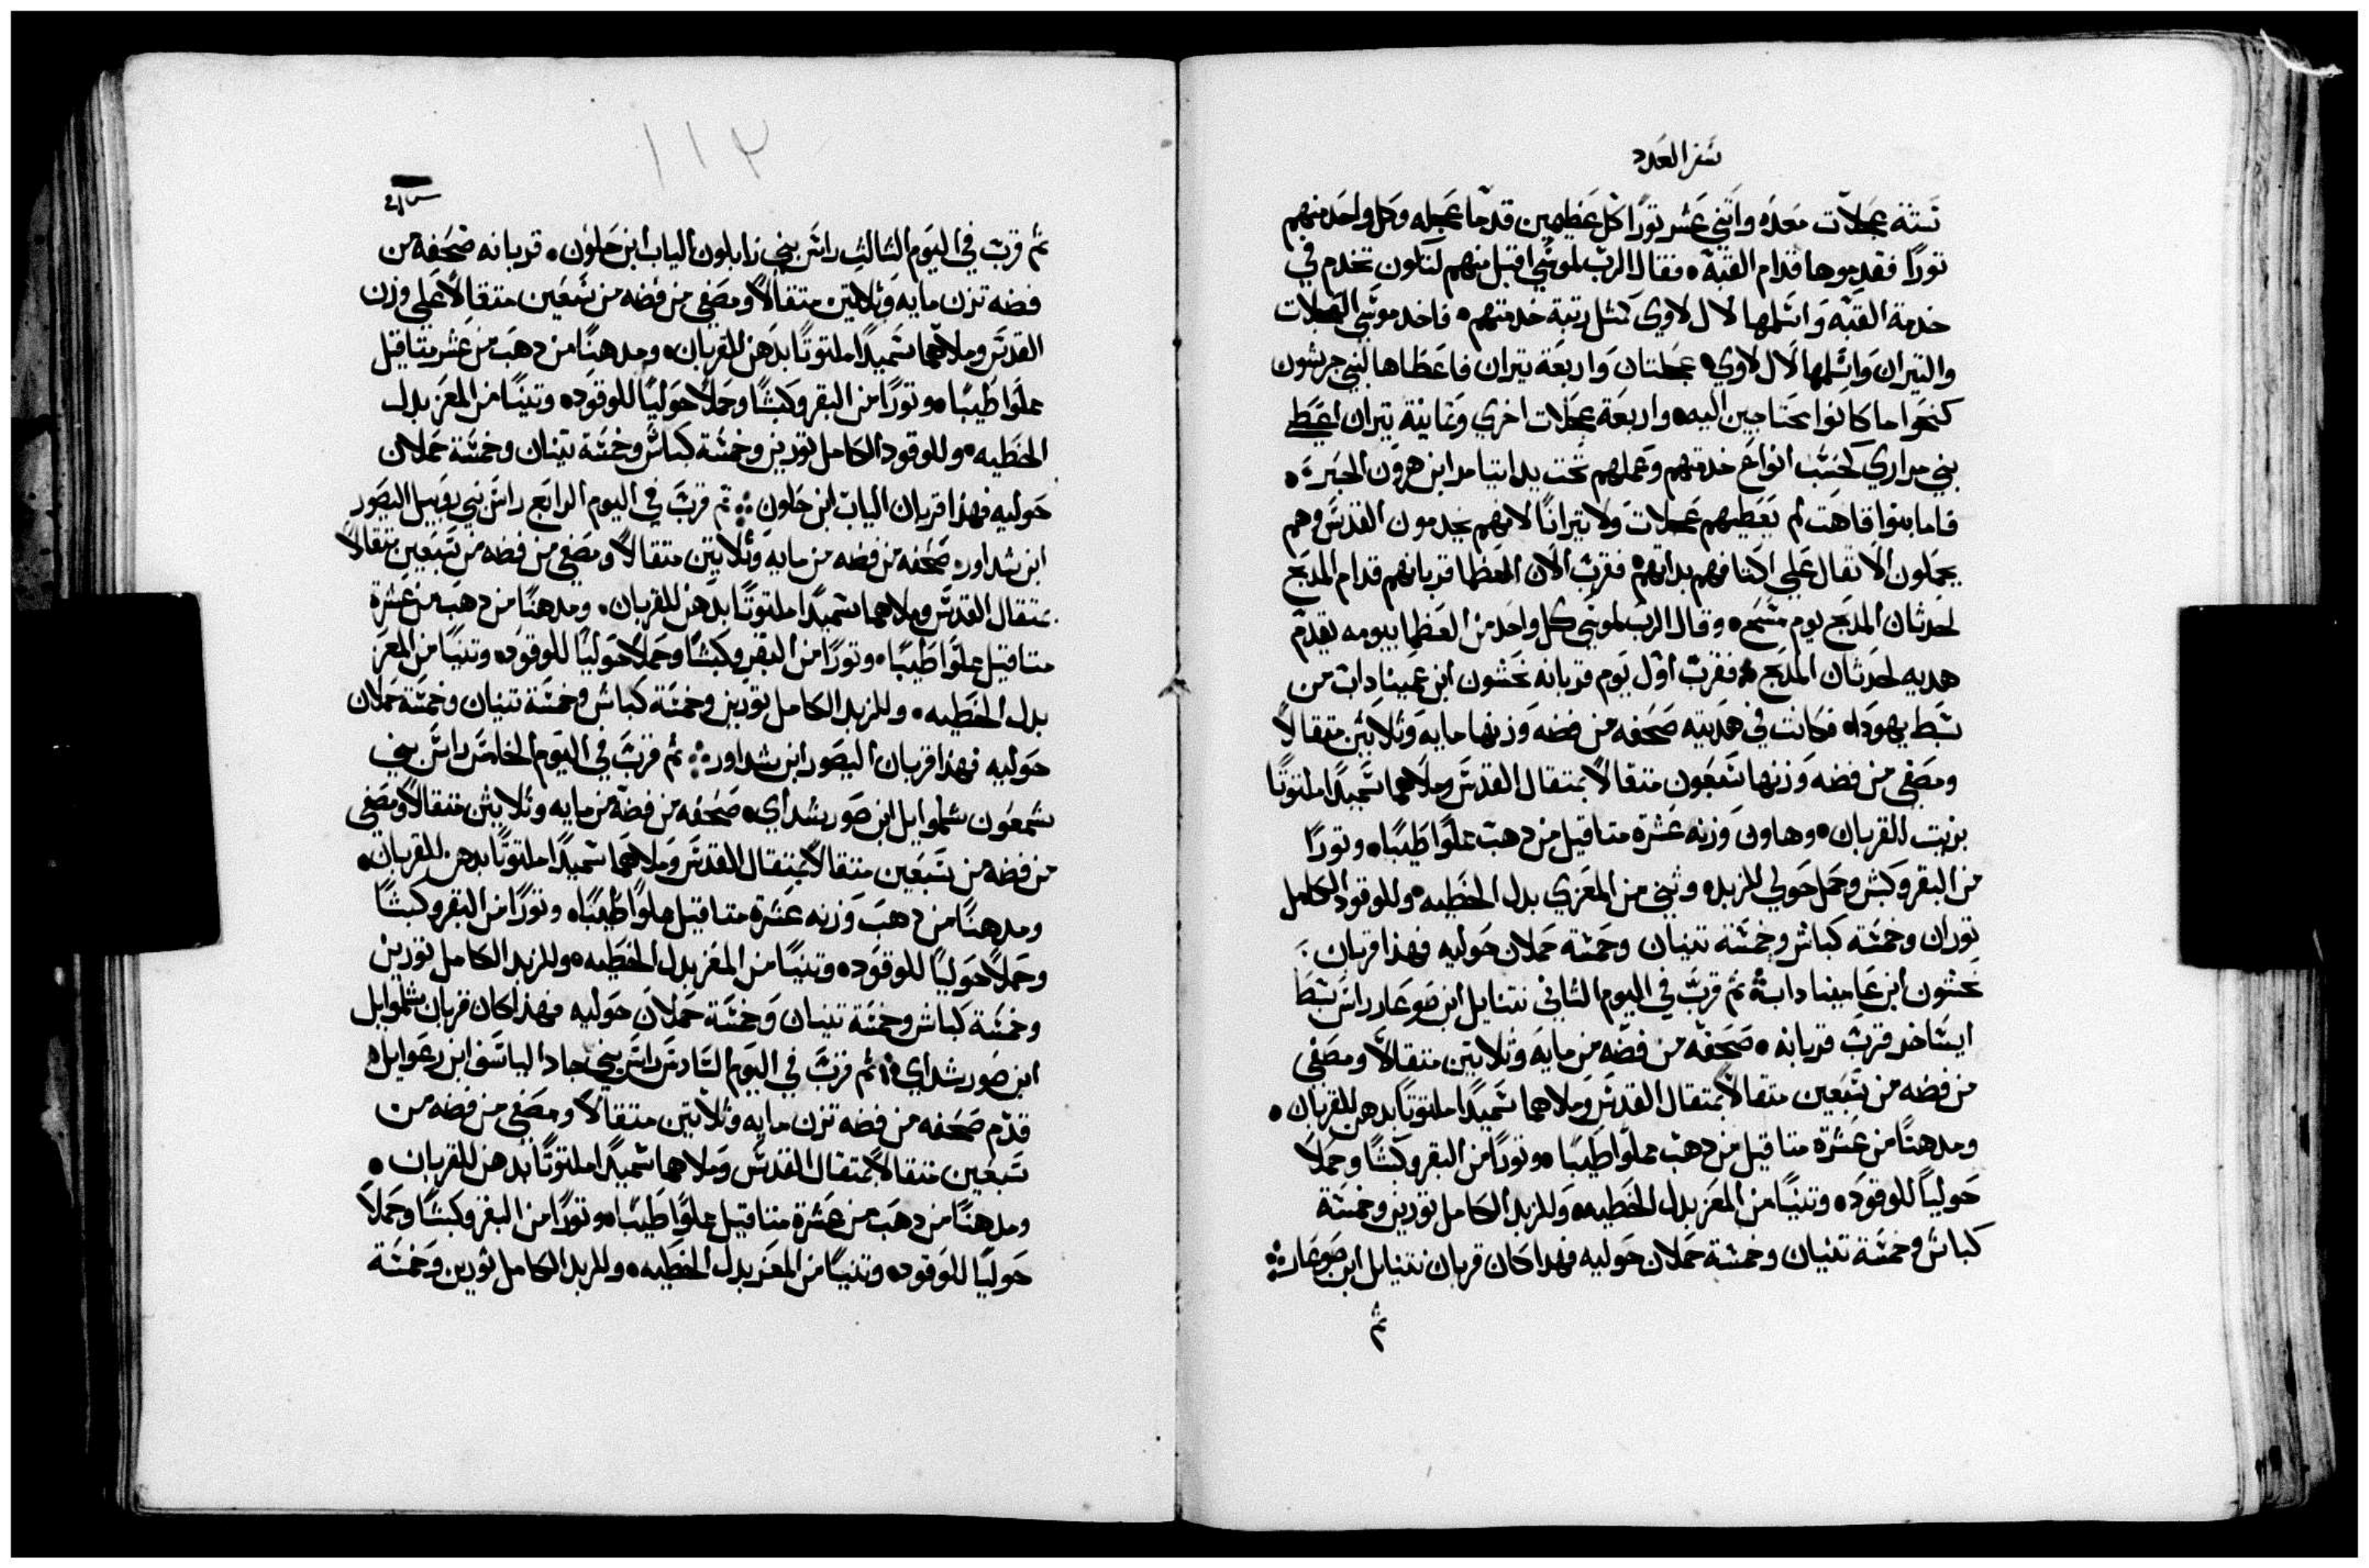 سفر العدد
ستة عجلات معده واتني عشر تورًا كل عظيمين قدما عجله وكل واحد منهم
تورًا فقدموها قدام القبة فقال الرب لموسي اقبل منهم لتكون تخدم في
خدمة القبه واسلمها لال لاوي كمثل رتبة خدمتهم فاخد موسي العجلات
والتيران واسلمها لال لاوي عجلتان واربعة تيران فاعطاها لبني جرشون
كنحوا ما كانوا محتاجين اليه واربعة عجلات اخري وتمانية تيران اعطي
بني مراري كحسب انواع خدمتهم وعملهم تحت يد ايتامر ابن هرون الحبر
فاما بنوا قاهت لم يعطيهم عجلات ولا تيرانًا لانهم يخدمون القدس وهم
يحملون الاتقال علي اكتافهم بداتهم فقرب الان العظما قربانهم قدام المدبح
لحدثان المدبح يوم مسح وقال الرب لموسي كل واحد من العظما بيومه يقدم
هديه لحدثان المدبح فقرب اول يوم قربانه نحشون ابن عميناداب من
سبط يهودا فكانت في هديته صحفه من فضه وزنها مايه وثلاثين متقالاً
ومصفي من فضه وزنها سبعون متقالاً بمتقال القدس وملاهما سميدًا ملتوتًا
بزيت للقربان وهاون وزنه عشرة متاقيل من دهب مملوًا طيبًا وتورًا
من البقر وكبش وحمل حولي للزبد وثني من المعزي بدل الخطيه وللوقود الكامل
توران وخمسة كباش وخمسة تنيان وخمسة حملان حوليه فهذا قربان
نحشون ابن عاميناداب ثم قرب في اليوم الثاني نتنايل ابن صوعار راس سبط
ايساخر قرب قربانه صحفه من فضه من مايه وثلاتين متقالاً ومصفي
من فضه من سبعين متقالاً بمتقال القدس وملاهما سميدًا ملتوتًا بدهن للقربان
ومدهنًا من عشرة متاقيل من دهب مملوًا طيبًا وتورًا من البقر وكبشًا وحملاً
حوليًا للوقود وتنيًا من المعز بدل الخطيه وللزبد الكامل تورين وخمسة
كباش وخمسة تنيان وخمسة حملان حوليه فهدا كان قربان نتنايل ابن صوعار
ثم
١١٢
ثم قرب في اليوم الثالث راس بني زابلون الياب ابن حلون قربانه صحفة من
فضه تزن مايه وثلاتين متقالاً ومصفي من فضه من سبعين متقالاً علي وزن
القدس وملاهما سميدًا ملتوتًا بدهن للقربان ومدهنًا من دهب من عشر متاقيل
مملوًا طيبًا وتورًا من البقر وكبشًا وحملاً حوليًا للوقود وتنيًا من المعز بدل
الخطيه وللوقود الكامل تورين وخمسة كباش وخمسة تنيان وخمسة حملان
حوليه فهذا قربان الياب ابن حلون ثم قرب في اليوم الرابع راس بني روبيل اليصور
ابن شداور صحفه من فضه من مايه وثلاتين متقالاً ومصفي من فضه من سبعين متقالاً
بمتقال القدس وملاهما سميدًا ملتوتًا بدهن للقربان ومدهنًا من دهب من عشرة
متاقيل مملوًا طيبًا وتورًا من البقر وكبشًا وحملاً حوليًا للوقود وتنيًا من المعز
بدل الخطيه وللزبد الكامل تورين وخمسة كباش وخمسة تنيان وخمسة حملان
حوليه فهذا قربان اليصور ابن شداور ثم قرب في اليوم الخامس راس بني
شمعون شلموايل ابن صوريشداي صحفه من فضة من مايه وثلاثين متقالاً ومصفي
من فضه من سبعين متقالاً بمتقال القدس وملاهما سميدًا ملتوتًا بدهن للقربان
ومدهنًا من دهب وزنه عشرة متاقيل مملوًا طيبًا وتورًا من البقر وكبشًا
وحملاً حوليًا للوقود وتنيًا من المعز بدل الخطيه وللزبد الكامل تورين
وخمسة كباش وخمسة تنيان وخمسة حملان حوليه فهذا كان قربان شلموايل
ابن صوريشداي ثم قرب في اليوم السادس راس بني جاد الياسف ابن رعوايل
قدم صحفه من فضه تزن مايه وثلاتين متقالاً ومصفي من فضه من
سبعين متقالاً بمتقال القدس وملاهما سميدًا ملتوتًا بدهن للقربان
ومدهنًا من دهب من عشرة متاقيل مملوًا طيبًا وتورًا من البقر وكبشًا وحملاً
حوليًا للوقود وتنيًا من المعز بدل الخطيه وللزبد الكامل تورين وخمسة